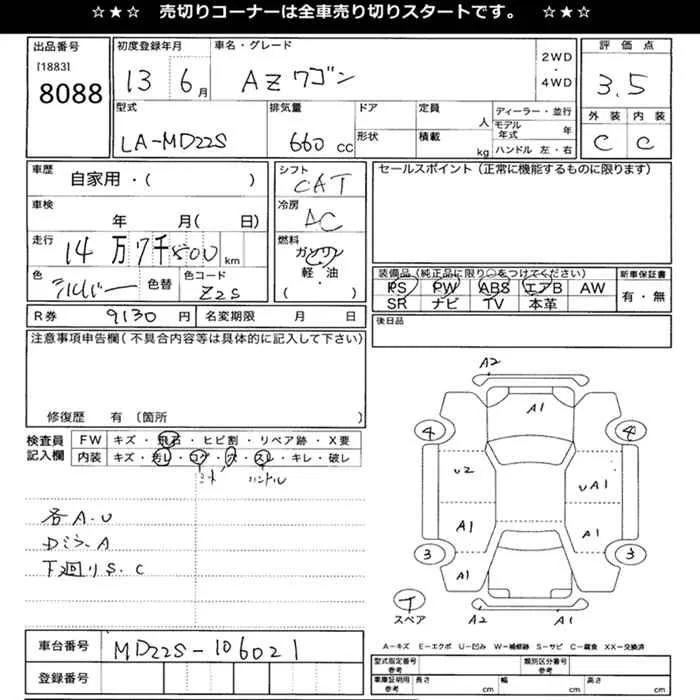 ☆★☆ 売切りコーナーは全車売り切りスタートです。 ☆★☆
出品番号 初度登録年月 車名・グレード 2WD・4WD 評価点
[1883] 8088 13 6月 AZワゴン 3.5
型式 排気量 ドア 定員 人 ディーラー・並行 外装 内装
LA-MD22S 660cc 形状 積載 kg モデル年式 年 C C
ハンドル 左・右
車歴 自家用・( ) シフト CAT セールスポイント(正常に機能するものに限ります)
車検 年 月( 日) 冷房 AC
走行 14万7千500km 燃料 ガソリン
軽・油
( )
色 シルバー 色替 色コード Z2S
装備品(純正品に限り○をつけてください) 新車保証書
PS PW ABS エアB AW 有・無
SR ナビ TV 本革
R券 9130円 名変期限 月 日 後日品
注意事項申告欄(不具合内容等は具体的に記入して下さい)
修復歴 有 〔箇所 〕
検査員記入欄 FW キズ・飛石・ヒビ割・リペア跡・X要
内装 キズ・汚レ・コゲ・穴・スレ・キレ・破レ
ハンドル
各A.U
Dミラ.A
下廻りS.C
A2
A1
4 4
U2 UA1
A1 A1
3 3
A1
スペア A2 A1
A-キズ E-エクボ U-凹み W-補修跡 S-サビ C-腐食 XX-交換済
車台番号 MD22S-106021
登録番号
型式指定番号 参考 類別区分番号 参考
車庫証明用 参考 長さ cm 幅 cm 高さ cm